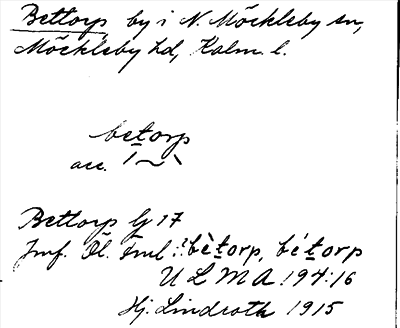 Bettorp by i N. Möckleby sn,
Möckleby hd, Kalm. l.
betorp
acc.
Bettorp lj 17
Inf. Öl. Fml: bètorp, bétorp
ULMA 194:16
Hj. Lindroth 1915